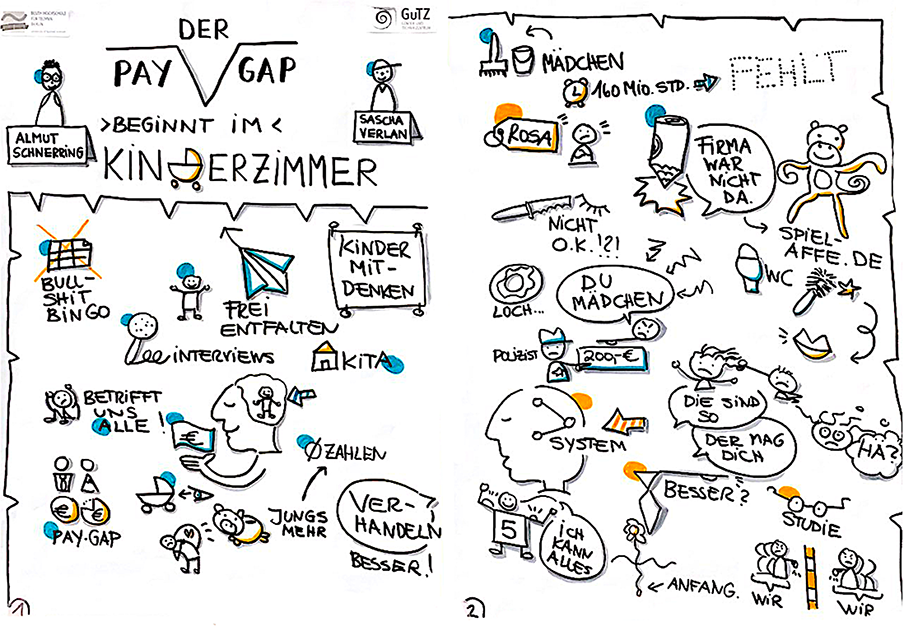 BEUTH HOCHSCHULE
FÜR TECHNIK
BERLIN
GuTZ
DER
PAY GAP
>BEGINNT IM<
KINDERZIMMER
ALMUT
SCHNERRING
SASCHA
VERLAN
BULL-
SHIT
BINGO
FREI
ENTFALTEN
KINDER
MIT-
DENKEN
INTERVIEWS
KITA
BETRIFFT
UNS
ALLE!
€
Ø ZAHLEN
€ €
PAY-GAP
JUNGS
MEHR
VER-
HANDELN
BESSER!
1
MÄDCHEN
160 MIO. STD.
FEHLT
ROSA
FIRMA
WAR
NICHT
DA.
SPIEL-
AFFE.DE
NICHT
O.K.!?!
WC
LOCH...
DU
MÄDCHEN
POLIZIST
200,-€
SYSTEM
DIE SIND
SO
DER MAG
DICH
HÄ?
BESSER?
STUDIE
5
ICH
KANN
ALLES
ANFANG.
WIR
WIR
2